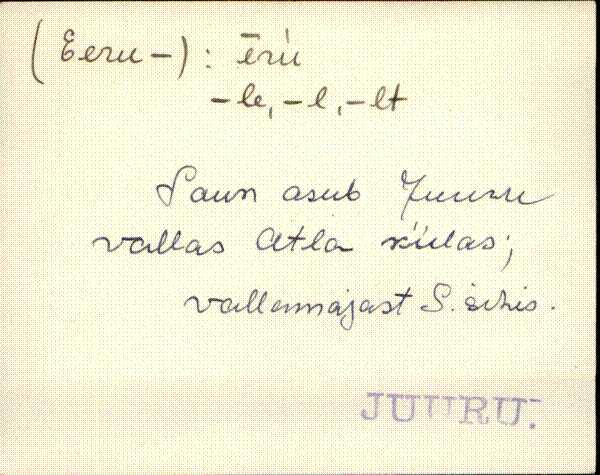 (Eeru-): ēru̇̀
-le, -l, -lt
Saun asub Juuru
vallas Atla külas;
vallamajast S.
JUURU.